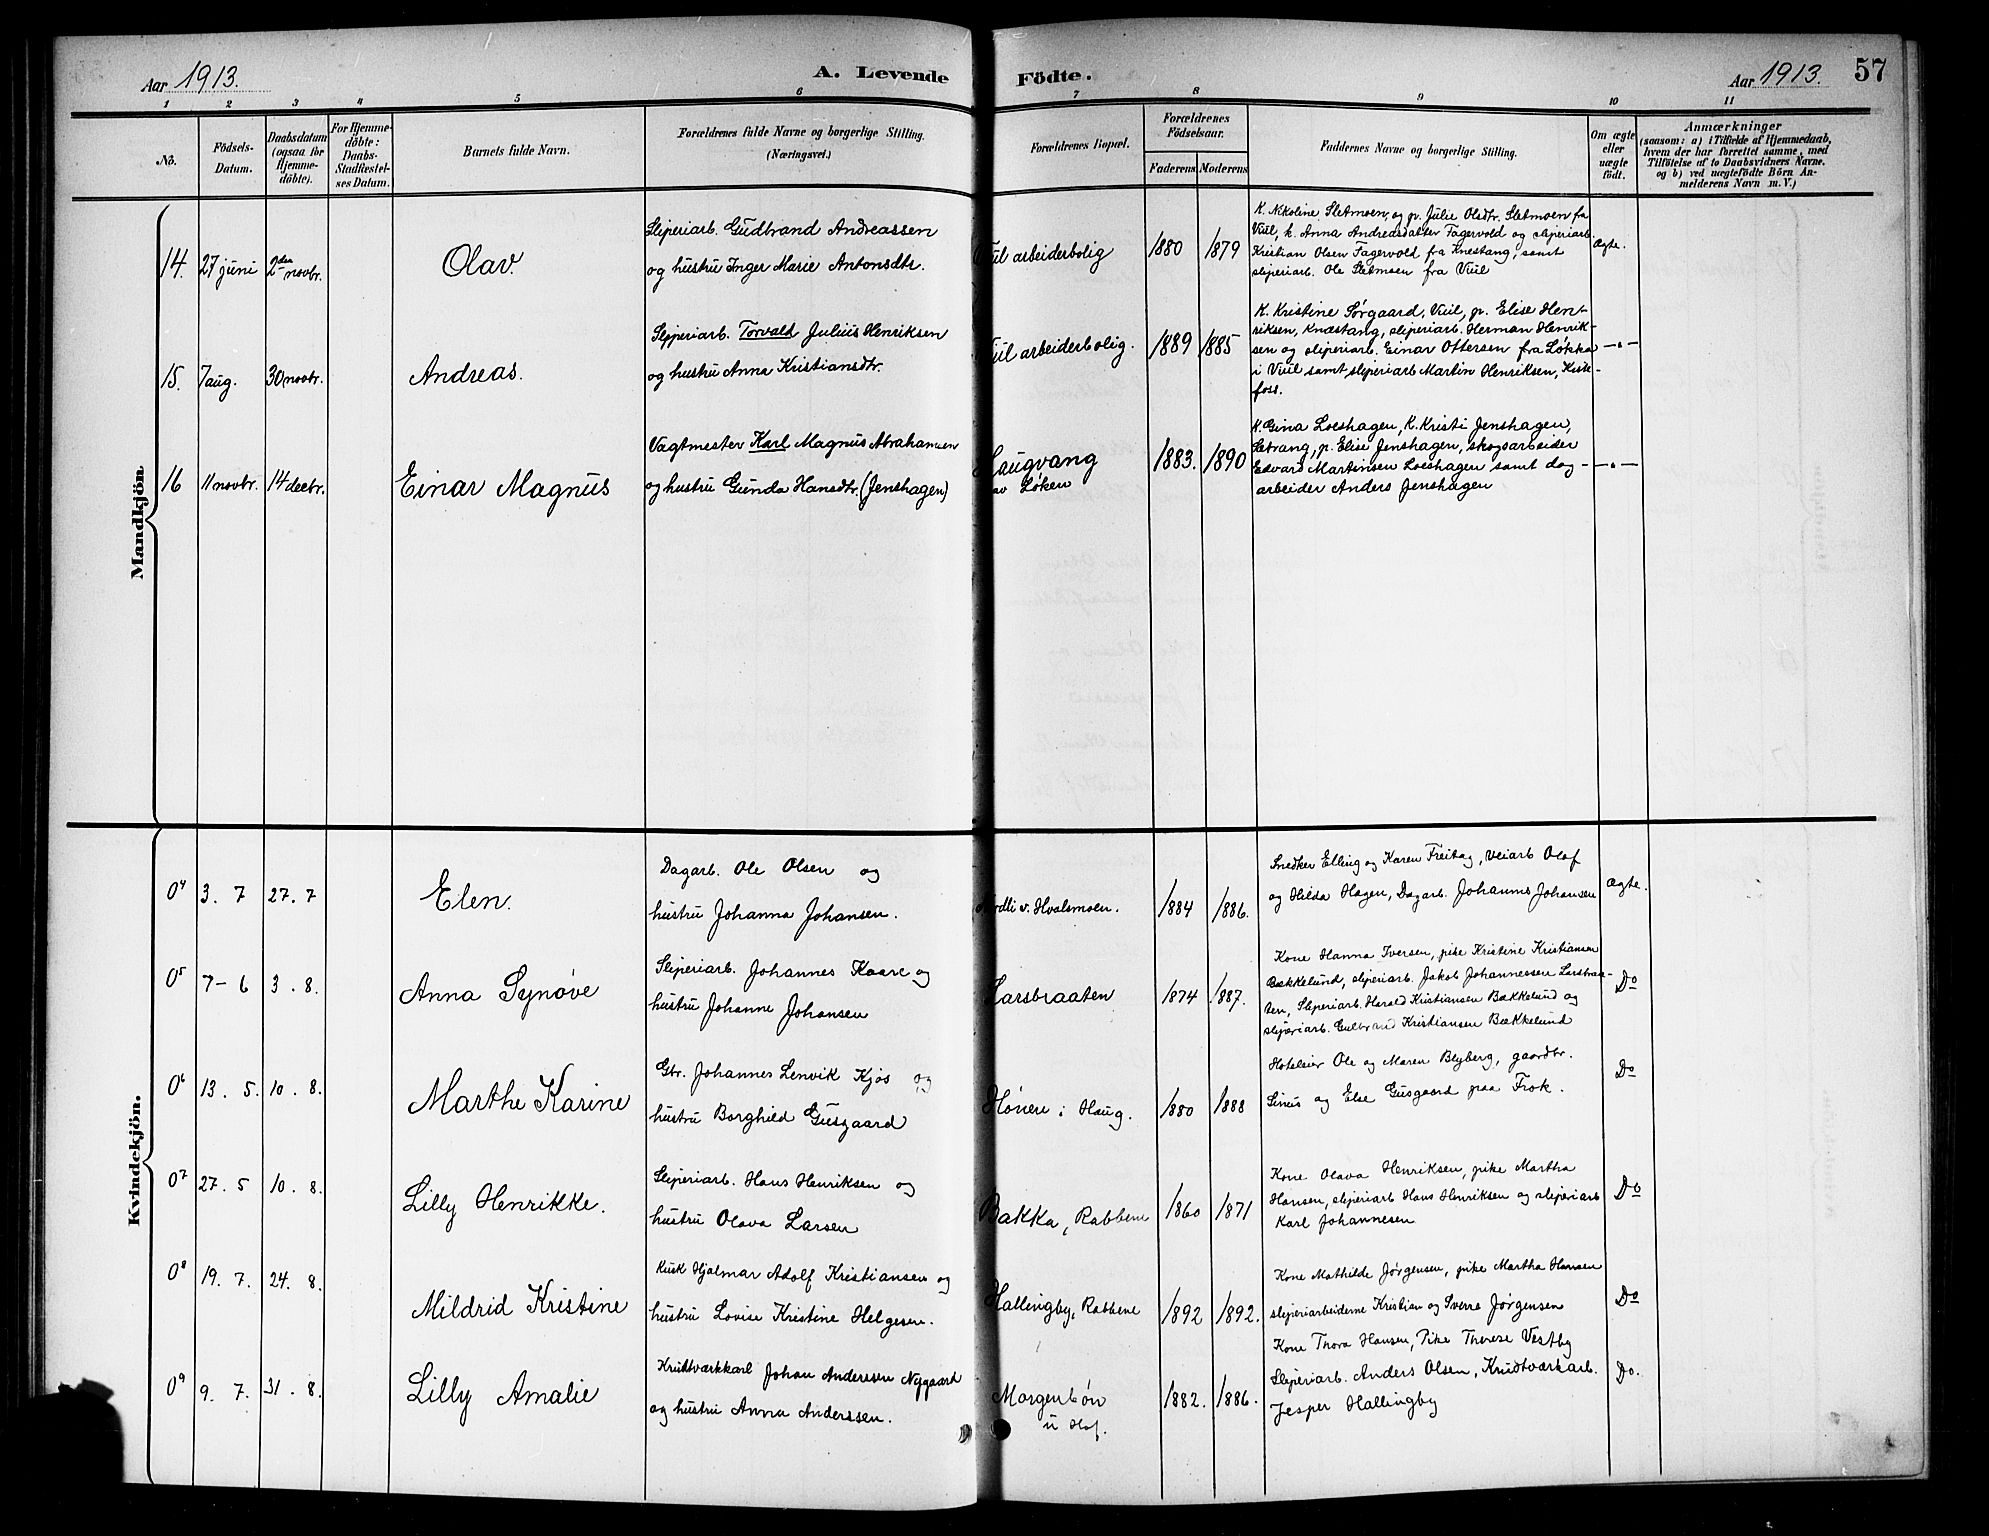 Aar 1913.
A. Levende Födte.
Aar 1913.
57
1 2 3 4 5 6 7 8 9 10 11
No.
Födsels-Datum.
Daabsdatum (ogsaa for Hjemme-döbte).
For Hjemme-döbte: Daabs-Stadfæstel-ses Datum.
Barnets fulde Navn.
Forældrenes fulde Navne og borgerlige Stilling.
(Næringsvei.)
Forældrenes Bopæl.
Forældrenes Födselsaar.
Faderens Moderens
Faddernes Navne og borgerlige Stilling.
Om ægte eller uægte födt.
Anmærkninger
(saasom: a) i Tilfælde af Hjemmedaab,
hvem der har forrettet samme, med
Tilföielse af to Daabsvidners Navne,
og b) ved uægtefödte Börn An-
melderens Navn m. V.)
Mandkjön
14. 27 juni 2den novbr. Olav.
Sliperiarb. Gudbrand Andreassen
og hustru Inger Marie Antonsdtr.
Viul arbeiderbolig 1880 1879
K. Nikoline Sletmoen, og p. Julie Olsdtr. Sletmoen fra
Viul, k. Anna Andreasdatter Fagervold og sliperiarb.
Kristian Olsen Fagervold fra Knestang, samt
sliperiarb. Ole Sletmoen fra Viul
Ægte.
15. 7 aug. 30 novbr. Andreas.
Slipperiarb. Torvald Julius Henriksen
og hustru Anna Kristiansdtr.
Viul arbeiderbolig. 1889 1885
K. Kristine Sørgaard, Viul, p. Elise Hen-
riksen, Knæstang, sliperiarb. Herman Henrik-
sen og sliperiarb. Einar Ottersen fra Løkka
i Viul samt sliperiarb Martin Henriksen, Kiste-
foss.
—„—
16 11 novbr. 14 decbr. Einar Magnus
Vagtmester Karl Magnus Abrahamsen
og hustru Gunda Hansdtr. (Jenshagen)
Haugvang
av Løken
1883. 1890
K. Gina Loeshagen, K. Kristi Jenshagen,
Sætrang, p. Elise Jenshagen, skogsarbeider
Edvard Martinsen Loeshagen samt dag-
arbeider Anders Jenshagen
—„—
Kvindekjön.
04 3. 7 27. 7 Elen.
Dagarb. Ole Olsen og
hustru Johanna Johansen.
Nordli v. Hvalsmoen. 1884 1886.
Snedker Elling og Karen Freitag, Veiarb Olaf
og Hilda Hagen, Dagarb. Johannes Johansen
Ægte.
05 7-6 3. 8. Anna Synøve
Sliperiarb. Johannes Kaare og
hustru Johanne Johansen
Larsbraaten 1874 1887.
Kone Hanna Iversen, pike Kristine Kristiansen
Bækkelund, sliperiarb. Jakob Johannessen Larsbraa-
ten, Sliperiarb. Harald Kristiansen Bækkelund og
sliperiarb. Gulbrand Kristiansen Bækkelund
Do
06 13. 5. 10. 8. Marthe Karine
Gbr. Johannes Lenvik Kjøs og
hustru Borghild Gusgaard
Hønen i Haug. 1880 1888
Hoteleier Ole og Maren Blyberg, gaardbr.
Sinus og Else Gusgaard paa Frok.
Do
07 27. 5 10. 8. Lilly Henrikke.
Sliperiarb. Hans Henriksen og
hustru Olava Larsen
Bakka, Rabbene 1860 1871
Kone Olava Henriksen, pike Martha
Hansen, sliperiarb Hans Henriksen og sliperiarb
Karl Johannesen
Do
08 19. 7. 24. 8. Mildrid Kristine
Kusk Hjalmar Adolf Kristiansen og
hustru Lovise Kristine Helgesen.
Hallingby, Rabbene 1892 1892.
Kone Mathilde Jørgensen, pike Martha Hansen
sliperiarbeiderne Kristian og Sverre Jørgensen
Do
09 9. 7. 31. 8. Lilly Amalie
Krudtværkkarl Johan Andersen Nygaard
og hustru Anna Anderssen.
Morgenbøn
u Hof.
1882. 1886.
Kone Thora Hansen, Pike Therese Vestby
Sliperiarb. Anders Olsen, Krudtværkarb.
Jesper Hallingby
Do.